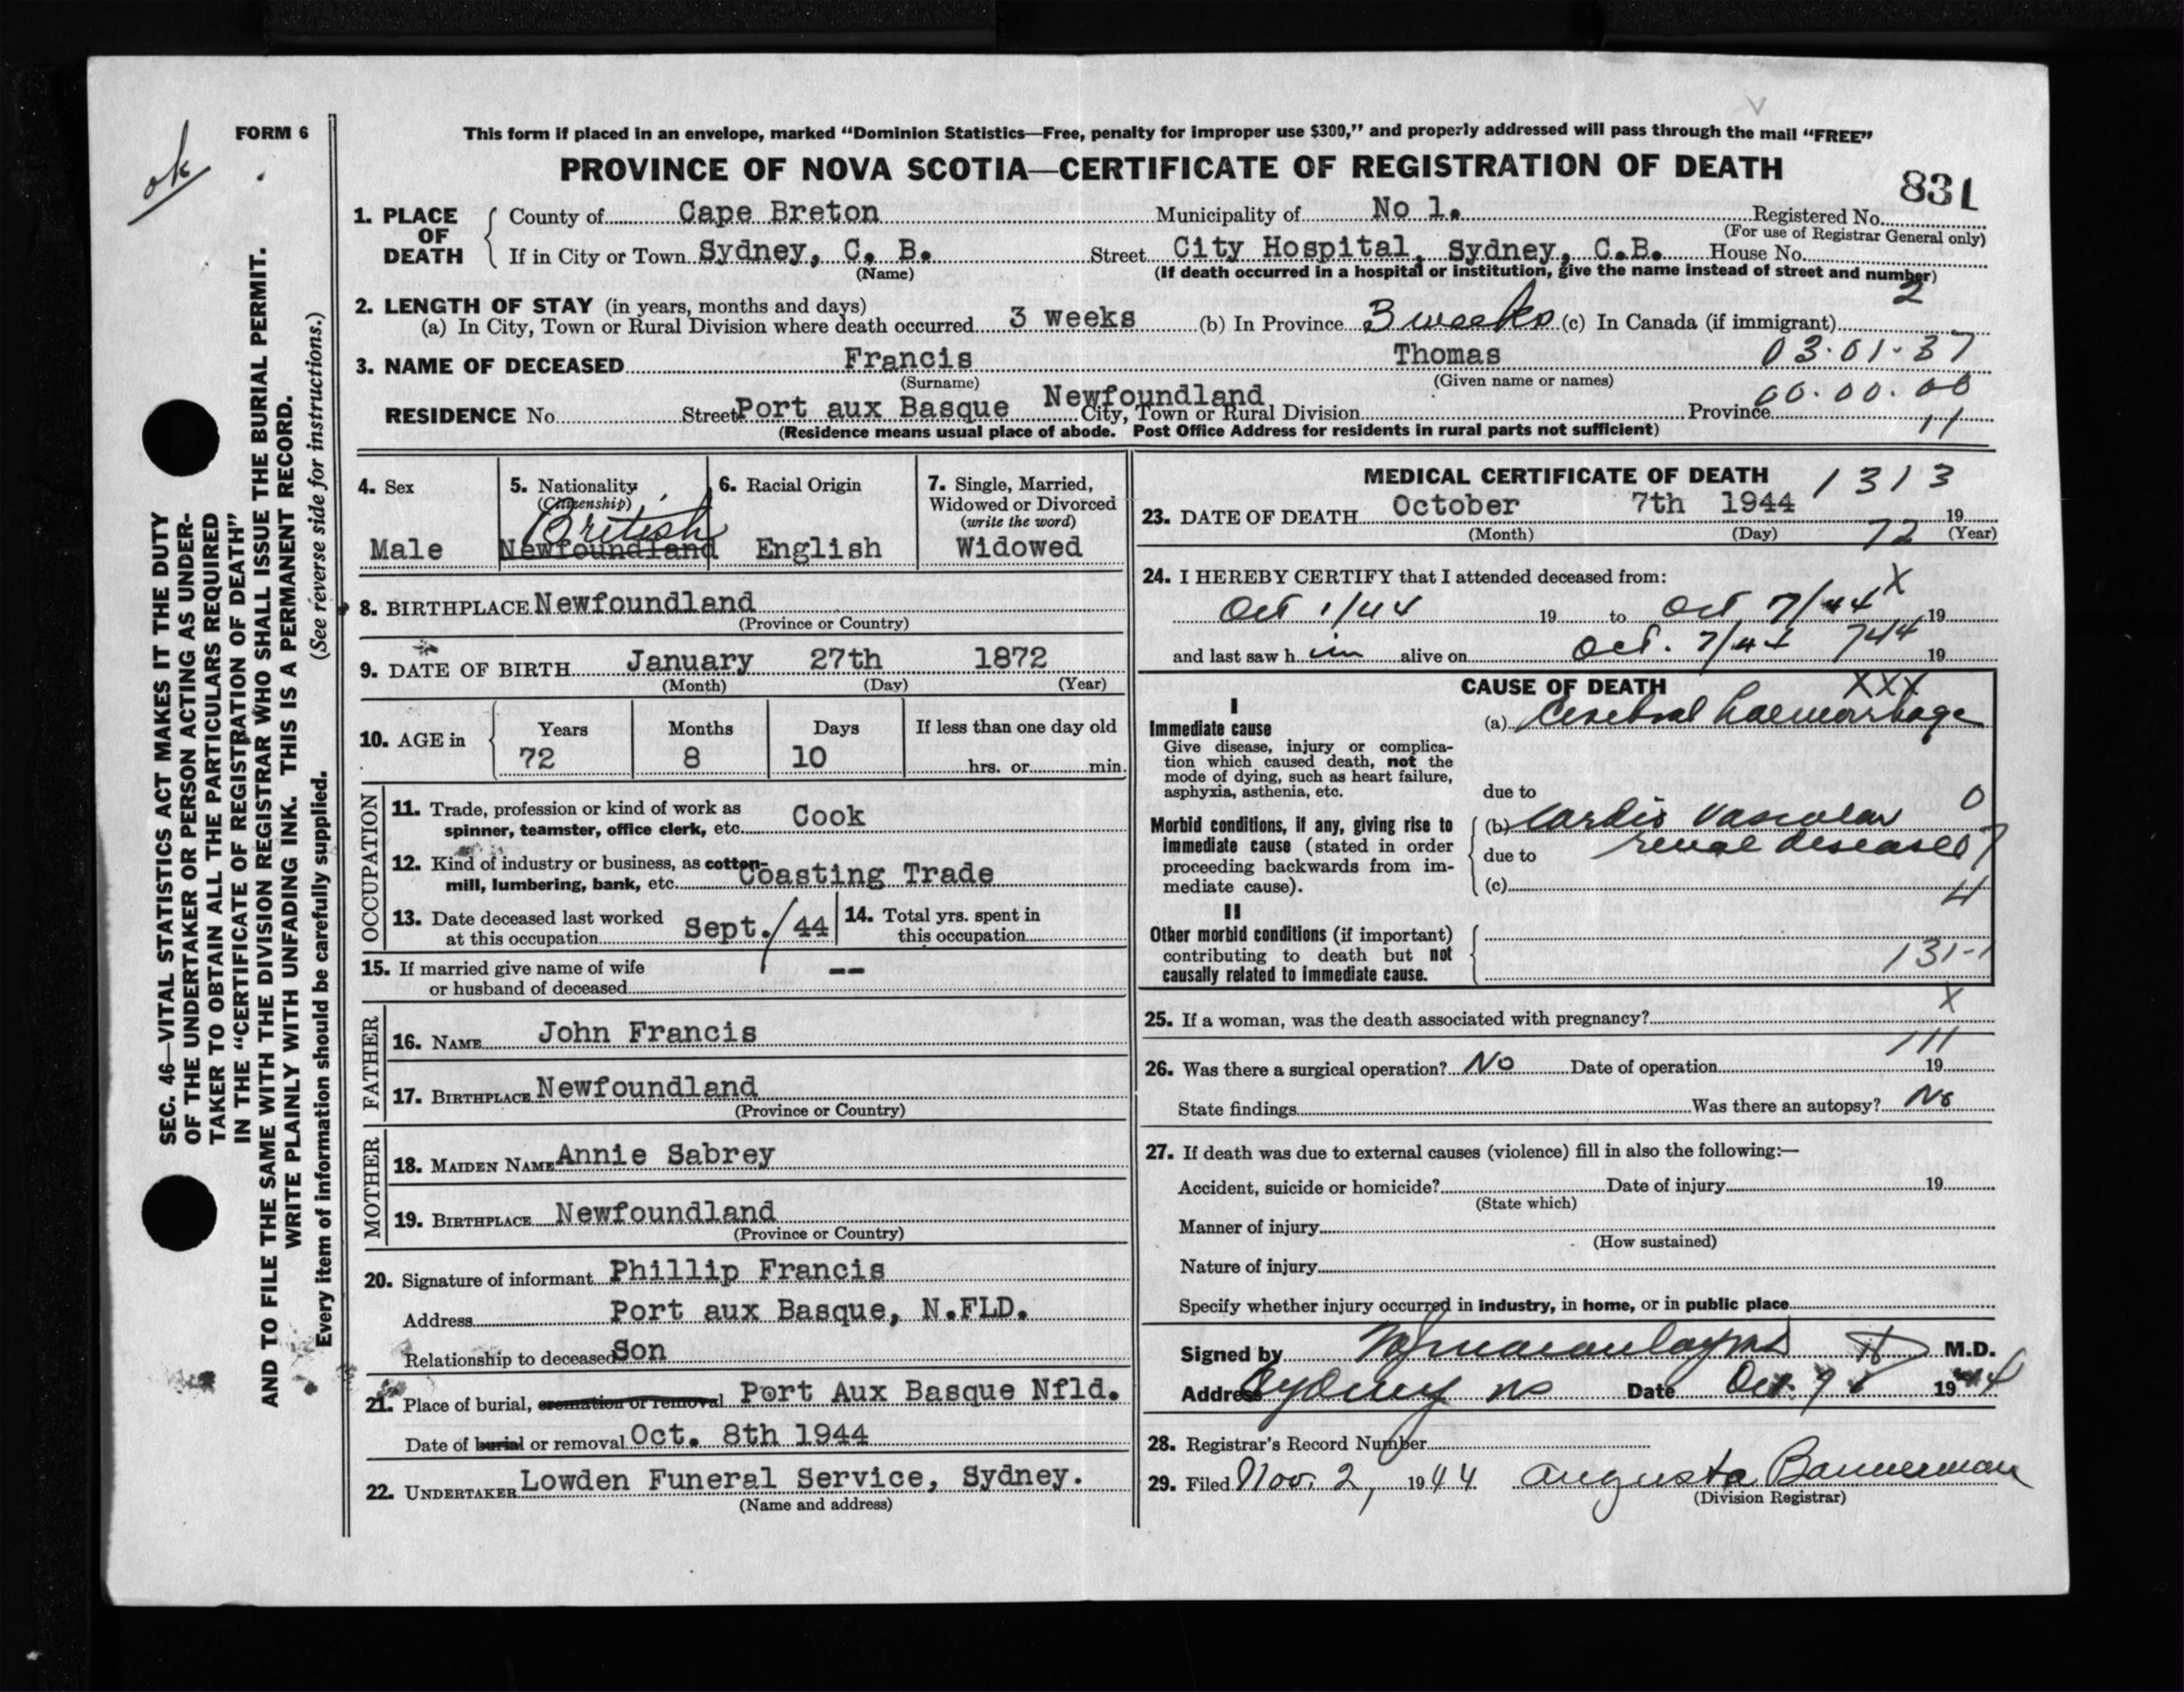 ok
FORM 6
SEC. 46—VITAL STATISTICS ACT MAKES IT THE DUTY
OF THE UNDERTAKER OR PERSON ACTING AS UNDER-
TAKER TO OBTAIN ALL THE PARTICULARS REQUIRED
IN THE "CERTIFICATE OF REGISTRATION OF DEATH"
AND TO FILE THE SAME WITH THE DIVISION REGISTRAR WHO SHALL ISSUE THE BURIAL PERMIT.
WRITE PLAINLY WITH UNFADING INK. THIS IS A PERMANENT RECORD.
Every item of information should be carefully supplied. (See reverse side for instructions.)
This form if placed in an envelope, marked "Dominion Statistics—Free, penalty for improper use $300," and properly addressed will pass through the mail "FREE"
PROVINCE OF NOVA SCOTIA—CERTIFICATE OF REGISTRATION OF DEATH
831
1. PLACE OF DEATH County of Cape Breton Municipality of No 1. Registered No.
(For use of Registrar General only)
If in City or Town Sydney, C. B. Street City Hospital, Sydney, C.B. House No.
(Name) (If death occurred in a hospital or institution, give the name instead of street and number)
2
2. LENGTH OF STAY (in years, months and days)
(a) In City, Town or Rural Division where death occurred 3 weeks (b) In Province 3 weeks (c) In Canada (if immigrant)
3. NAME OF DECEASED Francis Thomas 03.01.37
(Surname) (Given name or names)
RESIDENCE No. Street Port aux Basque Newfoundland City, Town or Rural Division Province 00.00.00
(Residence means usual place of abode. Post Office Address for residents in rural parts not sufficient) 11
4. Sex
Male
5. Nationality
(Citizenship)
British
Newfoundland
6. Racial Origin
English
7. Single, Married,
Widowed or Divorced
(write the word)
Widowed
8. BIRTHPLACE Newfoundland
(Province or Country)
9. DATE OF BIRTH January 27th 1872
(Month) (Day) (Year)
10. AGE in Years Months Days If less than one day old
72 8 10 hrs. or min.
OCCUPATION
11. Trade, profession or kind of work as
spinner, teamster, office clerk, etc. Cook
12. Kind of industry or business, as cotton-
mill, lumbering, bank, etc. Coasting Trade
13. Date deceased last worked
at this occupation Sept./44
14. Total yrs. spent in
this occupation
15. If married give name of wife
or husband of deceased --
FATHER
16. NAME John Francis
17. BIRTHPLACE Newfoundland
(Province or Country)
MOTHER
18. MAIDEN NAME Annie Sabrey
19. BIRTHPLACE Newfoundland
(Province or Country)
20. Signature of informant Phillip Francis
Address Port aux Basque, N.FLD.
Relationship to deceased Son
21. Place of burial, cremation or removal Port Aux Basque Nfld.
Date of burial or removal Oct. 8th 1944
22. UNDERTAKER Lowden Funeral Service, Sydney.
(Name and address)
MEDICAL CERTIFICATE OF DEATH 1313
23. DATE OF DEATH October 7th 1944 19
(Month) (Day) (Year)
72
24. I HEREBY CERTIFY that I attended deceased from: X
Oct 1/44 19 to Oct 7/44 19
and last saw h im alive on Oct. 7/44 744 19
CAUSE OF DEATH XXX
I
Immediate cause
Give disease, injury or complica-
tion which caused death, not the
mode of dying, such as heart failure,
asphyxia, asthenia, etc.
(a) Cerebral haemorrhage
due to
Morbid conditions, if any, giving rise to
immediate cause (stated in order
proceeding backwards from im-
mediate cause).
(b) Cardio Vascular 0
due to renal disease 7
(c) 4
II
Other morbid conditions (if important)
contributing to death but not
causally related to immediate cause.
131-1
X
25. If a woman, was the death associated with pregnancy?
111
26. Was there a surgical operation? No Date of operation 19
State findings Was there an autopsy? No
27. If death was due to external causes (violence) fill in also the following:—
Accident, suicide or homicide? Date of injury 19
(State which)
Manner of injury
(How sustained)
Nature of injury
Specify whether injury occurred in industry, in home, or in public place
Signed by M.D.
Address Sydney NS Date Oct. 9 1944
28. Registrar's Record Number
29. Filed Nov. 2, 1944 Augusta Bannerman
(Division Registrar)